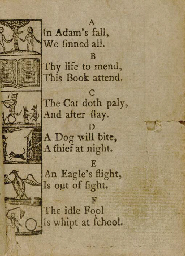 A
In Adam's fall,
We sinned all.
B
Thy life to mend,
This Book attend.
C
The Cat doth play,
And after slay.
D
A Dog will bite,
A thief at night.
E
An Eagle's flight,
Is out of sight.
F
The idle Fool
Is whipt at school.